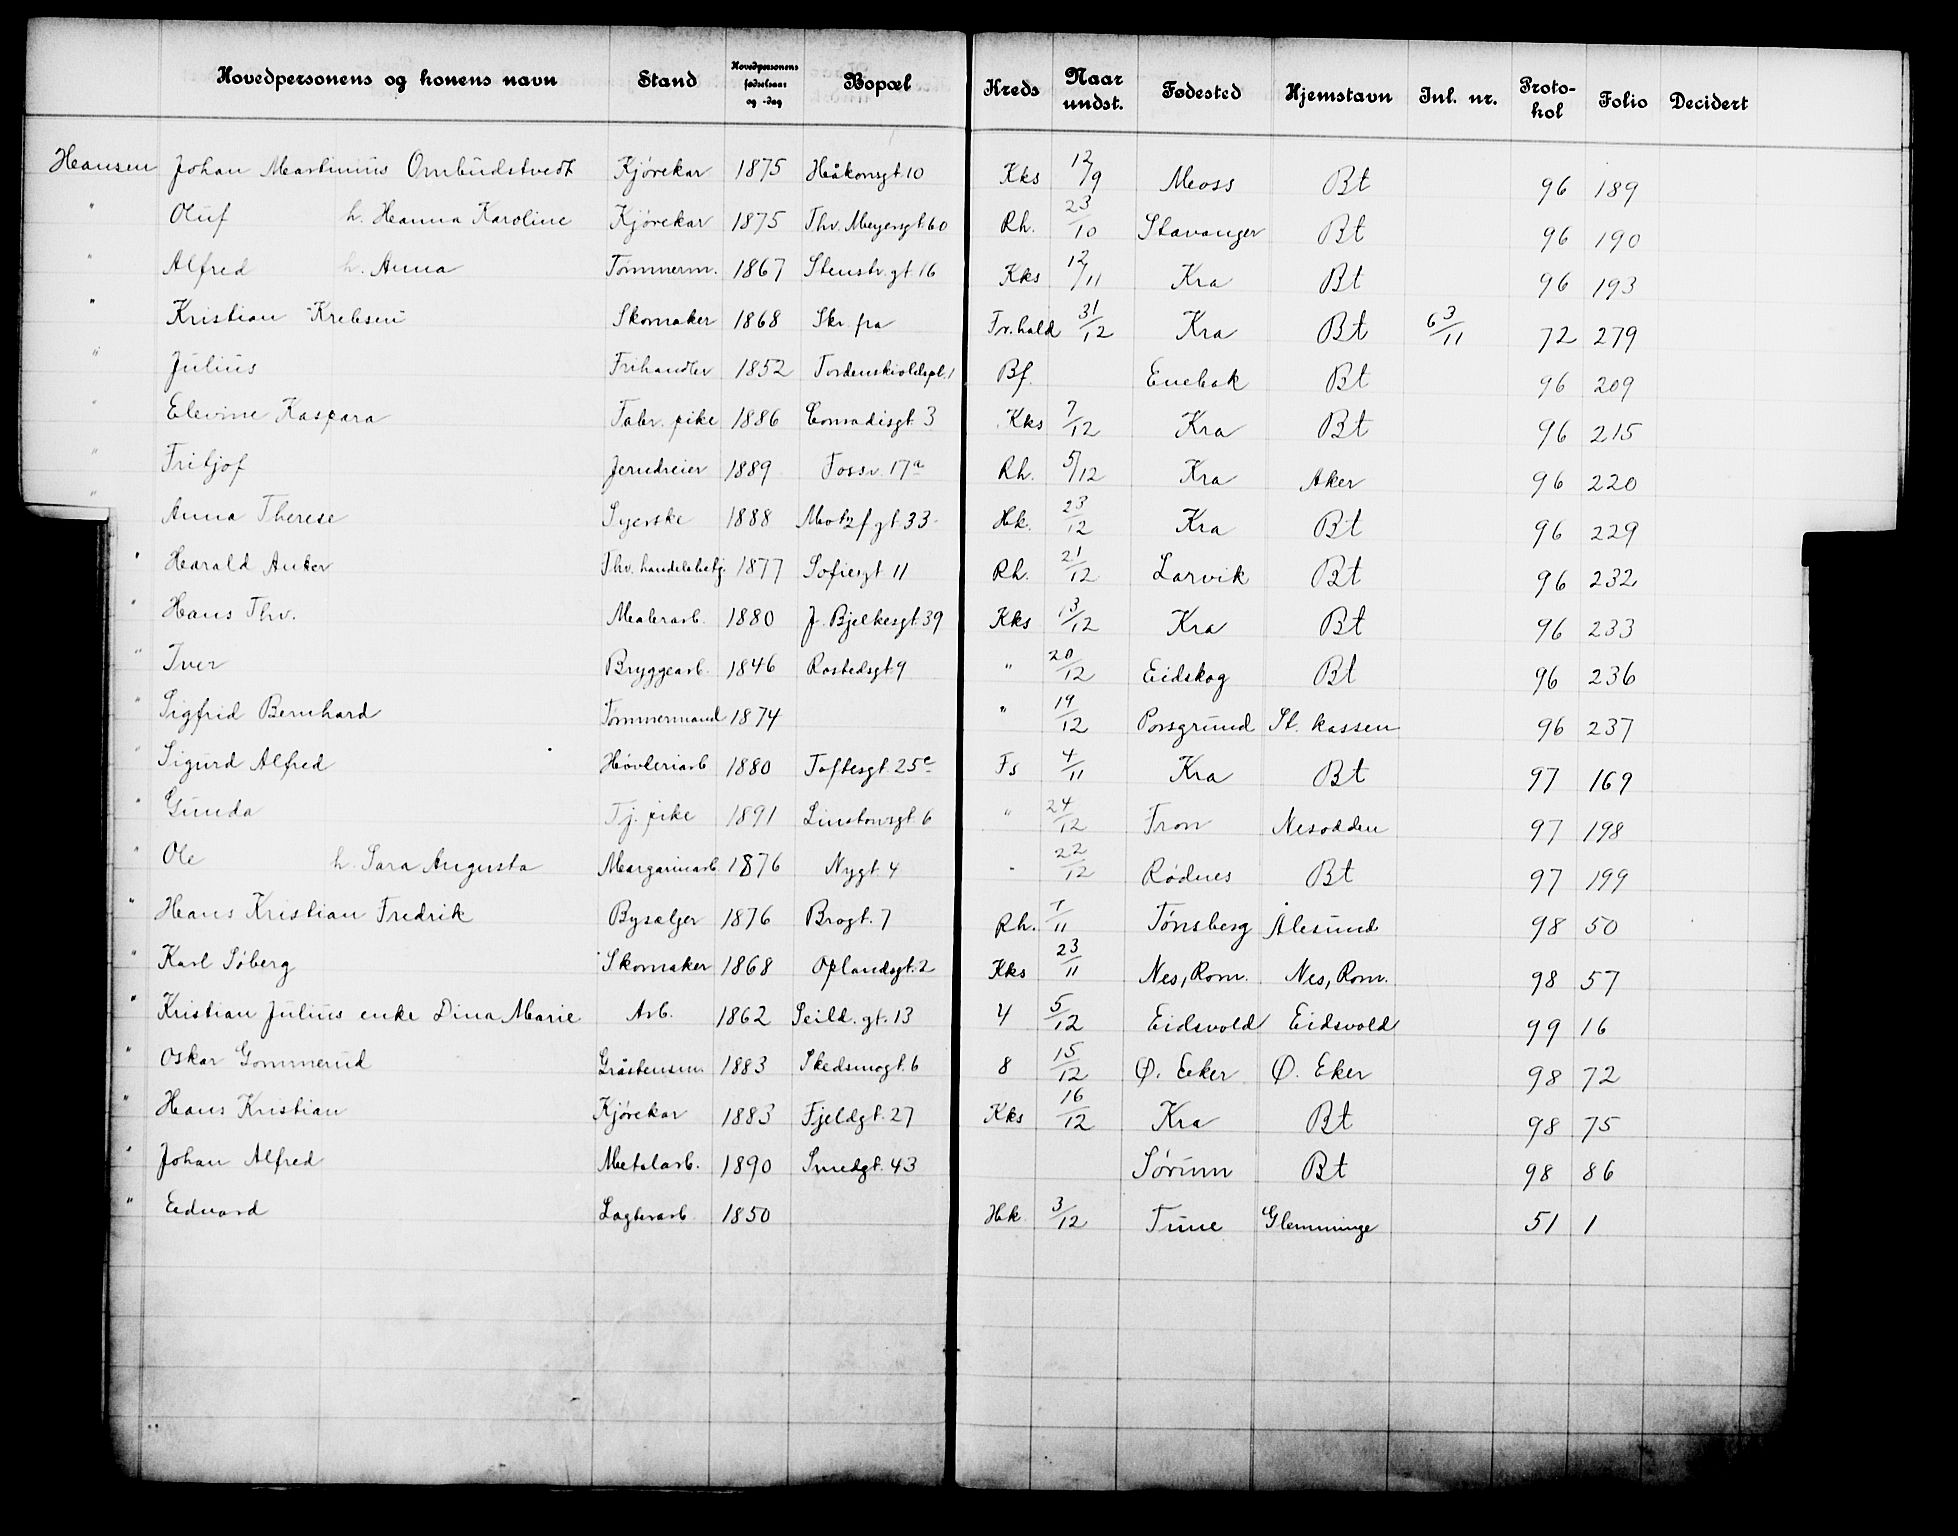 Hovedpersonens og konens navn Stand Hovedpersonens fødselsaar og -dag Bopæl Kreds Naar undst. Fødested Hjemstavn Inl. nr. Proto-kol Folio Decidert
Hansen Johan Martinius Ombudstvedt Kjørekar 1875 Håkonsgt. 10 Kks 12/9 Moss Bt 96 189
" Oluf h. Hanna Karoline Kjørekar 1875 Thv. Meyersgt. 60 Rh. 23/10 Stavanger Bt 96 190
" Alfred h. Anna Tømmerm. 1867 Stenstr. gt. 16 Kks 12/11 Kra Bt 96 193
" Kristian "Krebsen" Skomaker 1868 Skr fra Tv. hald 31/12 Kra Bt 6 3/11 72 279
" Julius Frihandler 1852 Tordenskioldspl. 1 Bf. Enebak Bt 96 209
" Elevine Kaspara Fabr. pike 1886 Conradisgt. 3 Kks 7/12 Kra Bt 96 215
" Fritjof Jerndreier 1889 Fossv. 17a Rh. 5/12 Kra Aker 96 220
" Anna Therese Syerske 1888 Motzf gt. 33 Hk. 23/12 Kra Bt 96 229
" Harald Anker Thv. handelsbetj. 1877 Sofiesgt 11 Rh. 21/12 Larvik Bt 96 232
" Hans Thv. Malerarb. 1880 J. Bjelkesgt. 39 Kks 13/12 Kra Bt 96 233
" Iver Bryggearb. 1846 Rostedsgt 9 " 20/12 Eidskog Bt 96 236
" Sigfrid Bernhard Tømmermand 1874 " 19/12 Porsgrund St. kassen 96 237
" Sigurd Alfred Høvleriarb 1880 Toftesgt. 25c Fs 4/11 Kra Bt 97 169
" Gunda Tj. pike 1891 Linstowsgt. 6 " 24/12 Fron Nesodden 97 198
" Ole h. Sara Augusta Margarinarb. 1876 Nygt. 4 " 22/12 Rødnes Bt 97 199
" Hans Kristian Fredrik Bysælger 1876 Brogt. 7 Rh. 7/11 Tønsberg Ålesund 98 50
" Karl Søberg Skomaker 1868 Oplandsgt. 2 Kks 23/11 Nes, Rom. Nes, Rom. 98 57
" Kristian Julius enke Dina Marie Arb. 1862 Seild. gt. 13 4 5/12 Eidsvold Eidsvold 99 16
" Oskar Gommerud Gråstensm. 1883 Skedsmogt. 6 8 15/12 Ø. Eeker Ø. Eker 98 72
" Hans Kristian Kjørekar 1883 Fjeldgt. 27 Kks 16/12 Kra Bt 98 75
" Johan Alfred Metalarb. 1890 Smedgt. 43 Sørum Bt 98 86
" Edvard Lagerarb. 1850 Hk. 3/12 Tune Glemminge 51 1